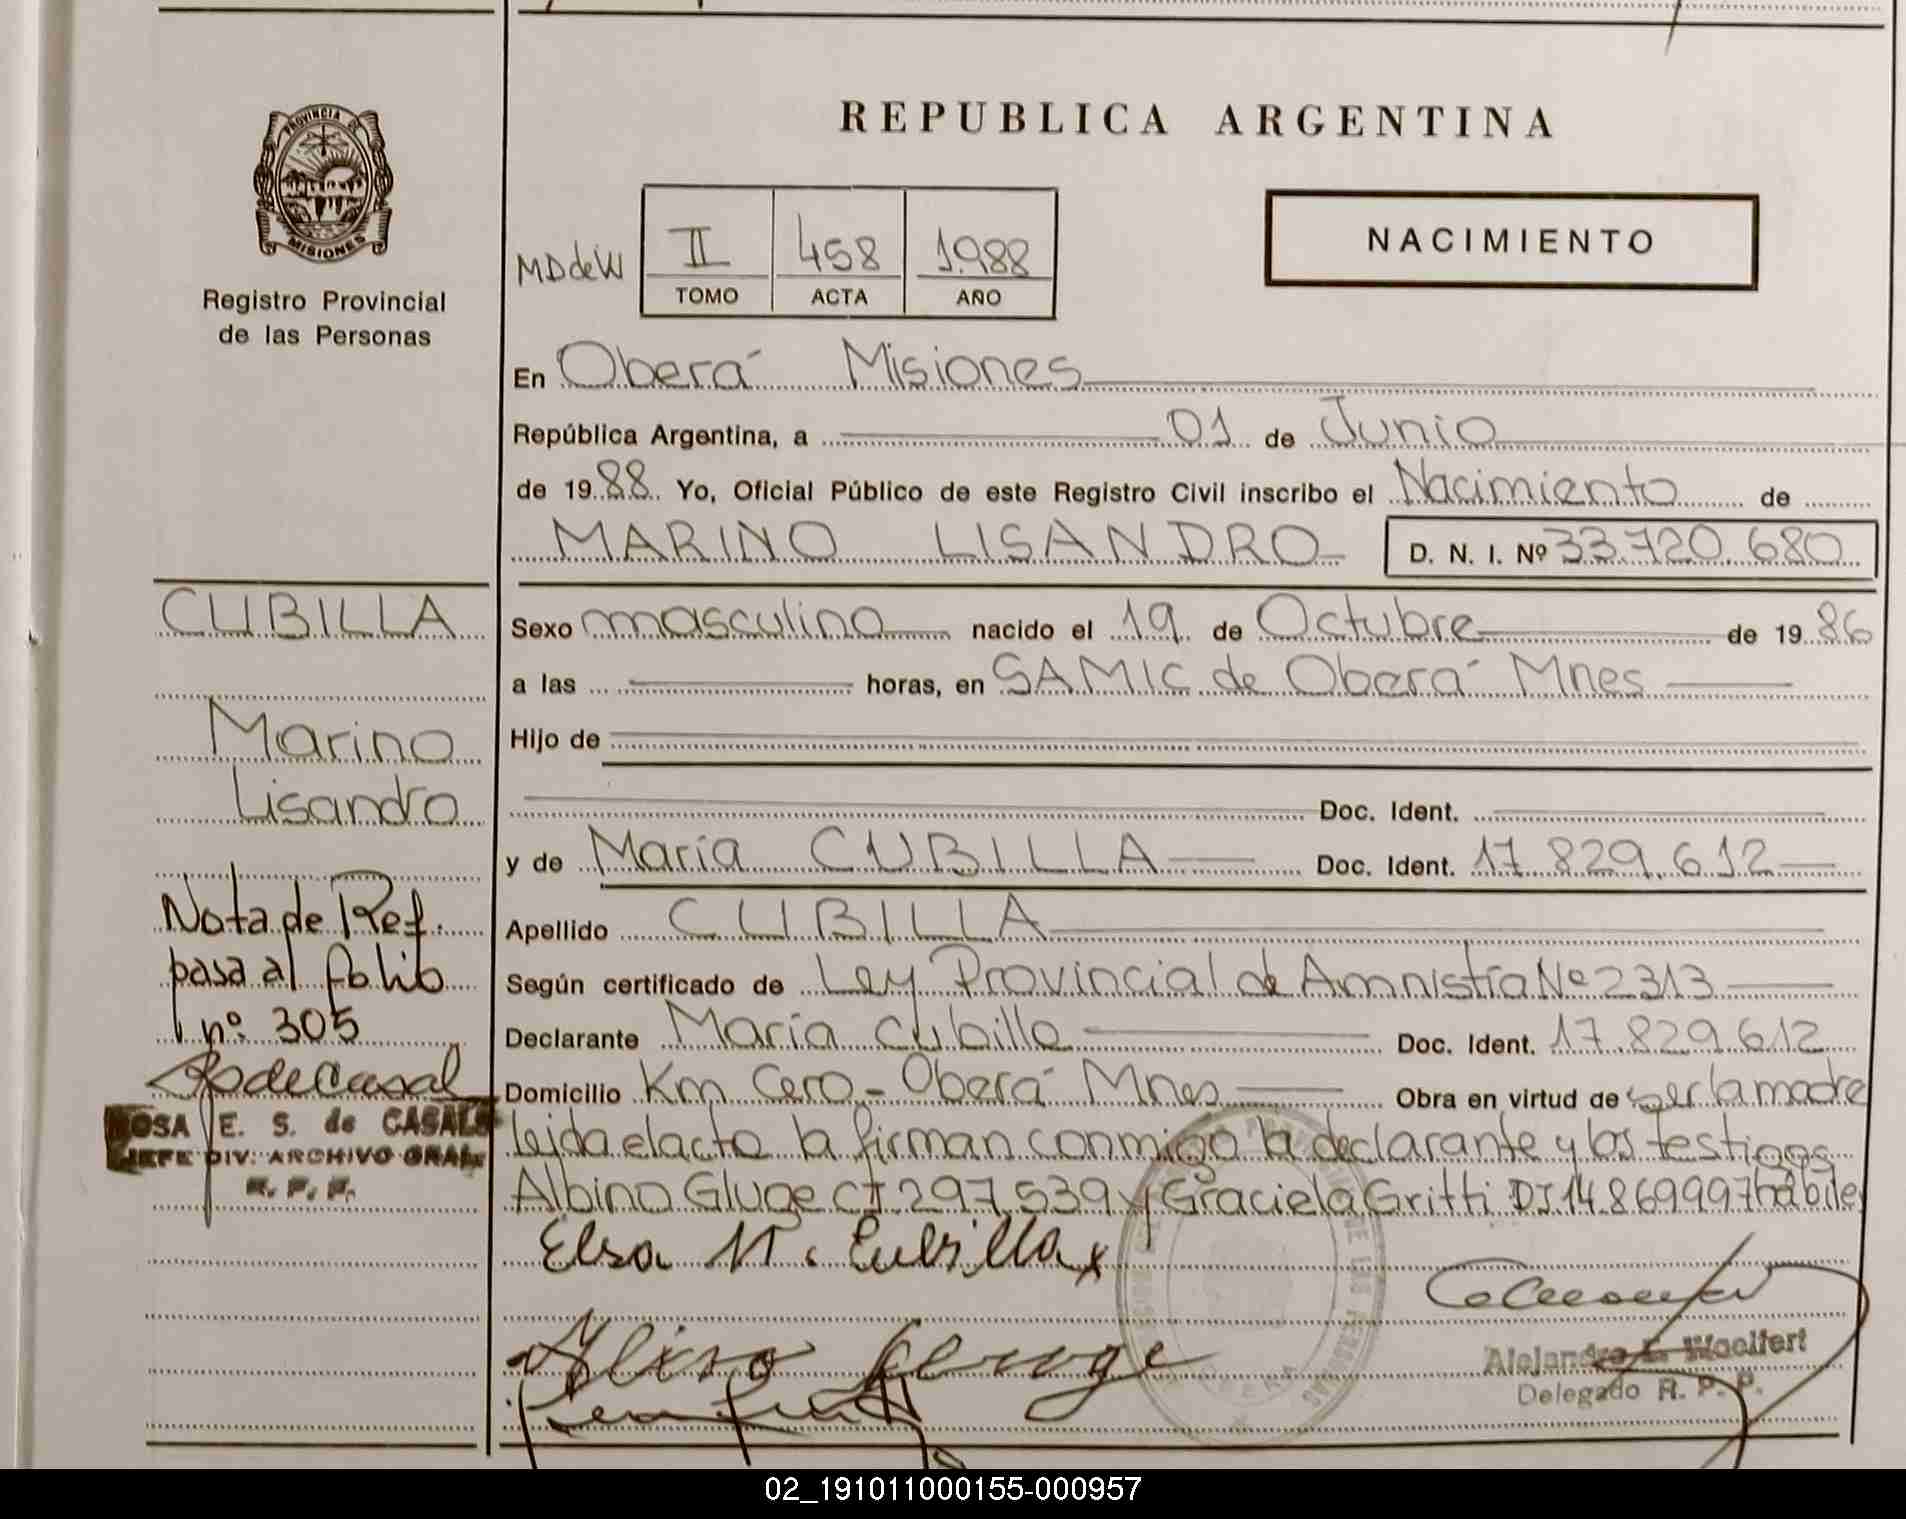 PROVINCIA DE
MISIONES
Registro Provincial
de las Personas
REPUBLICA ARGENTINA
NACIMIENTO
MD de W
II 458 1.988
TOMO ACTA AÑO
En Oberá Misiones
República Argentina, a 01 de Junio
de 1988. Yo, Oficial Público de este Registro Civil inscribo el Nacimiento de
MARINO LISANDRO D. N. I. Nº 33.720.680
CUBILLA
Marino
Lisandro
Nota de Ref.
pasa al folio
nº 305
ROSA E. S. de CASALS
JEFE DIV. ARCHIVO GRAL.
R. P. P.
Sexo masculino nacido el 19 de Octubre de 1986
a las horas, en SAMIC de Oberá Mnes
Hijo de
Doc. Ident.
y de María CUBILLA Doc. Ident. 17.829.612
Apellido CUBILLA
Según certificado de Ley Provincial de Amnistía Nº 2313
Declarante María Cubilla Doc. Ident. 17.829.612
Domicilio Km Cero - Oberá Mnes Obra en virtud de ser la madre
leida el acta la firman conmigo la declarante y los testigos
Albino Gluge CI 297.539 y Graciela Gritti DI 14.869997 hábiles
Elsa M. Cubilla
Alejandro E. Woelfert
Delegado R. P. P.
02_191011000155-000957